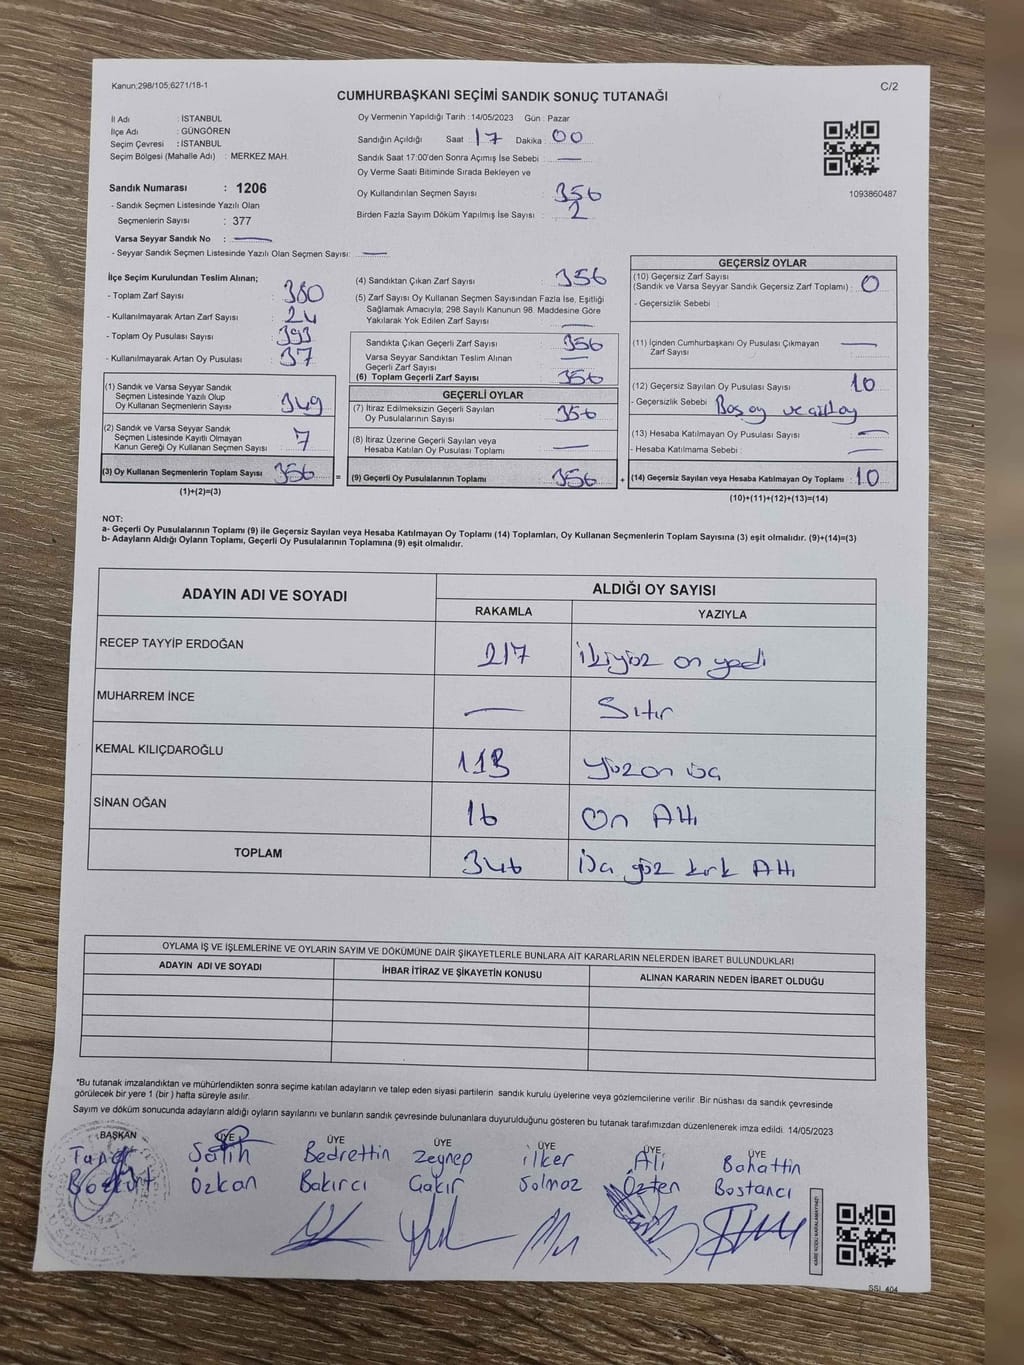 Kanun;298/105;6271/18-1
C/2
CUMHURBAŞKANI SEÇİMİ SANDIK SONUÇ TUTANAĞI
İl Adı : İSTANBUL
İlçe Adı : GÜNGÖREN
Seçim Çevresi : İSTANBUL
Seçim Bölgesi (Mahalle Adı) : MERKEZ MAH.
Sandık Numarası : 1206
- Sandık Seçmen Listesinde Yazılı Olan
Seçmenlerin Sayısı : 377
Varsa Seyyar Sandık No : —
- Seyyar Sandık Seçmen Listesinde Yazılı Olan Seçmen Sayısı: —
Oy Vermenin Yapıldığı Tarih : 14/05/2023 Gün : Pazar
Sandığın Açıldığı Saat : 17 Dakika : 00
Sandık Saat 17:00'den Sonra Açımış İse Sebebi : —
Oy Verme Saati Bitiminde Sırada Bekleyen ve
Oy Kullandırılan Seçmen Sayısı : 356
Birden Fazla Sayım Döküm Yapılmış İse Sayısı : 2
1093860487
İlçe Seçim Kurulundan Teslim Alınan;
- Toplam Zarf Sayısı : 380
- Kullanılmayarak Artan Zarf Sayısı : 24
- Toplam Oy Pusulası Sayısı : 393
- Kullanılmayarak Artan Oy Pusulası : 37
(1) Sandık ve Varsa Seyyar Sandık
Seçmen Listesinde Yazılı Olup
Oy Kullanan Seçmenlerin Sayısı : 349
(2) Sandık ve Varsa Seyyar Sandık
Seçmen Listesinde Kayıtlı Olmayan
Kanun Gereği Oy Kullanan Seçmen Sayısı : 7
(3) Oy Kullanan Seçmenlerin Toplam Sayısı : 356
(1)+(2)=(3)
=
(4) Sandıktan Çıkan Zarf Sayısı : 356
(5) Zarf Sayısı Oy Kullanan Seçmen Sayısından Fazla İse, Eşitliği
Sağlamak Amacıyla; 298 Sayılı Kanunun 98. Maddesine Göre
Yakılarak Yok Edilen Zarf Sayısı : —
Sandıkta Çıkan Geçerli Zarf Sayısı : 356
Varsa Seyyar Sandıktan Teslim Alınan
Geçerli Zarf Sayısı : —
(6) Toplam Geçerli Zarf Sayısı : 356
GEÇERLİ OYLAR
(7) İtiraz Edilmeksizin Geçerli Sayılan
Oy Pusulalarının Sayısı : 356
(8) İtiraz Üzerine Geçerli Sayılan veya
Hesaba Katılan Oy Pusulası Toplamı : —
(9) Geçerli Oy Pusulalarının Toplamı : 356
+
GEÇERSİZ OYLAR
(10) Geçersiz Zarf Sayısı
(Sandık ve Varsa Seyyar Sandık Geçersiz Zarf Toplamı) : 0
- Geçersizlik Sebebi :
(11) İçinden Cumhurbaşkanı Oy Pusulası Çıkmayan
Zarf Sayısı : —
(12) Geçersiz Sayılan Oy Pusulası Sayısı : 10
- Geçersizlik Sebebi : Boş oy ve
(13) Hesaba Katılmayan Oy Pusulası Sayısı : —
- Hesaba Katılmama Sebebi : —
(14) Geçersiz Sayılan veya Hesaba Katılmayan Oy Toplamı : 10
(10)+(11)+(12)+(13)=(14)
NOT:
a- Geçerli Oy Pusulalarının Toplamı (9) ile Geçersiz Sayılan veya Hesaba Katılmayan Oy Toplamı (14) Toplamları, Oy Kullanan Seçmenlerin Toplam Sayısına (3) eşit olmalıdır. (9)+(14)=(3)
b- Adayların Aldığı Oyların Toplamı, Geçerli Oy Pusulalarının Toplamına (9) eşit olmalıdır.
ADAYIN ADI VE SOYADI
ALDIĞI OY SAYISI
RAKAMLA YAZIYLA
RECEP TAYYİP ERDOĞAN 217 ikiyüz on yedi
MUHARREM İNCE — Sıfır
KEMAL KILIÇDAROĞLU 113 yüz on üç
SİNAN OĞAN 16 On Altı
TOPLAM 346 üç yüz kırk Altı
OYLAMA İŞ VE İŞLEMLERİNE VE OYLARIN SAYIM VE DÖKÜMÜNE DAİR ŞİKAYETLERLE BUNLARA AİT KARARLARIN NELERDEN İBARET BULUNDUKLARI
ADAYIN ADI VE SOYADI İHBAR İTİRAZ VE ŞİKAYETİN KONUSU ALINAN KARARIN NEDEN İBARET OLDUĞU
*Bu tutanak imzalandıktan ve mühürlendikten sonra seçime katılan adayların ve talep eden siyasi partilerin sandık kurulu üyelerine veya gözlemcilerine verilir. Bir nüshası da sandık çevresinde
görülecek bir yere 1 (bir) hafta süreyle asılır.
Sayım ve döküm sonucunda adayların aldığı oyların sayılarını ve bunların sandık çevresinde bulunanlara duyurulduğunu gösteren bu tutanak tarafımızdan düzenlenerek imza edildi. 14/05/2023
BAŞKAN ÜYE ÜYE ÜYE ÜYE ÜYE ÜYE
Taner Salih Bedrettin Zeynep ilker Ali Bahattin
Bozkurt Özkan Bakırcı Çakır Solmaz Özten Bostancı
KARE KODU KARALAMAYINIZ!
SSL 404